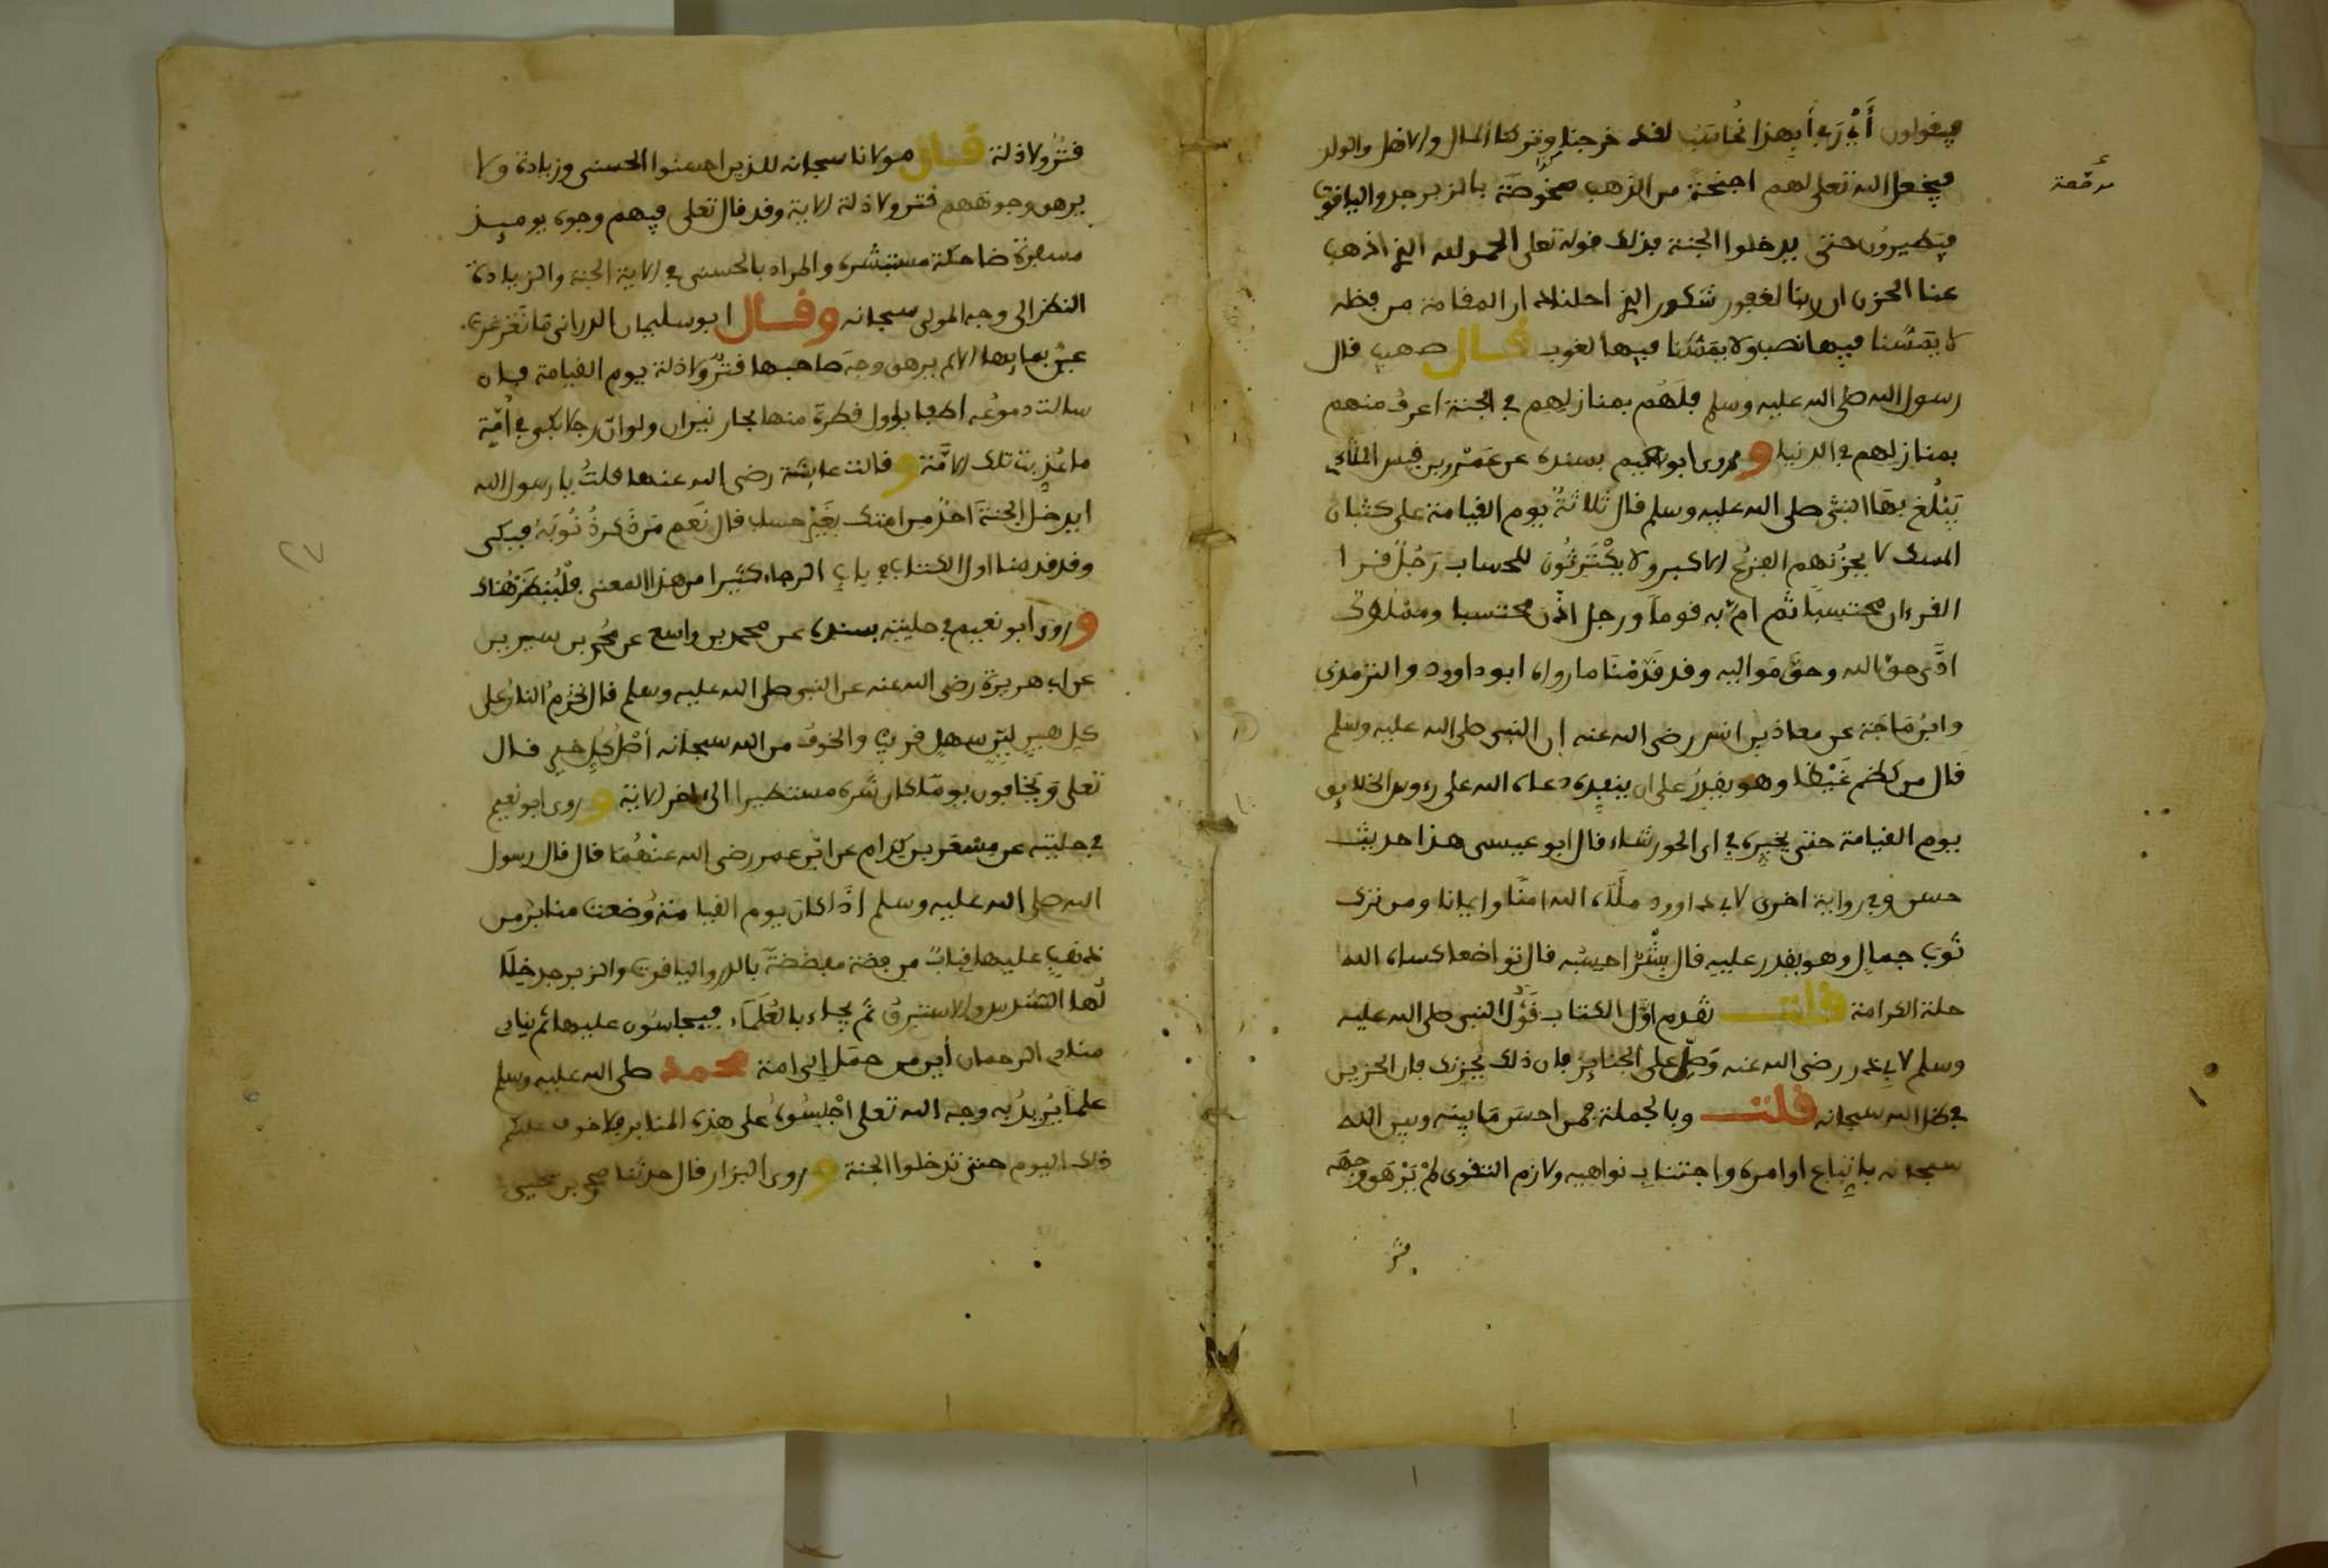 فيقولون أَيْ رَبِ أَبِهذا نُحاسَبُ لقد خرجنا وتركنا المال والاهل والولد
مرصّعة
فيجعل الله تعلى لهم اجنحةً من الذهب مخوّصَة بالزبرجد والياقوت
فيَطيرون حتى يدخلوا الجنة فذلك قوله تعلى الحمد لله الذي اذهب
عنا الحزن ان ربنا لغفور شكور الذي احلنا دار المقامة من فضله
لا يمَسُّنا فيها نصب ولا يمَسُّنا فيها لغوب قال صهيب قال
رسول الله صلى الله عليه وسلم فلَهُم بمنازلهم في الجنة اعرفُ منهم
بمنازلهم في الدنيا وروى ابو نعيم بسنده عن عَمْرو بن قيس الملاي
يَبْلُغ بهَا النبيّ صلى الله عليه وسلم قال ثلاثةٌ يوم القيامة على كثبان
المسك لا يحزُنهم الفزعُ الاكبر ولا يكْتَرِثُون للحساب رَجُلٌ قرا
القرءان محتسبًا ثم امّ به قومًا ورجل اذّن محتسبا ومملوك
ادَّى حق الله وحقَّ مَواليه وقد قَدّمْنَا ما رواه ابو داوود والترمذي
وابنُ مَاجَة عن معاذ بن انس رضي الله عنه ان النبي صلى الله عليه وسلم
قال من كظم غَيْظًا وهو يقدِرُ على ان ينفِذه دعاه الله على رءوس الخلايق
يوم القيامة حتى يخيره في اي الحور شاء قال ابو عيسى هذا حديث
حسن وفي رواية اخرى لابي داوود ملَأَه الله امنًا وايمانا ومن ترك
ثوبَ جمالٍ وهو يقدر عليه قال بِشْرٌ احسبُه قال تواضعا كساه الله
حلة الكرامة قلت تقدم اوّل الكتاب قَوْلُ النبي صلى الله عليه
وسلم لابي ذر رضي الله عنه وَصَلِّ على الجنايز فان ذلك يُحزنك فان الحزين
في ظل الله سبحانه قلت وبالجملة فمن احسَن مَا بينه وبين الله
سبحانه باتِباع اوامره واجتنابِ نواهيه ولازم التقوى لمْ يَرْهَق وجهَه
قتر
قتَرٌ ولا ذلة قال مولانا سبحانه للذين احسنوا الحسنى وزيادة ولا
يرهق وجوههم قتر ولا ذلة الاية وقد قال تعلى فيهم وجوه يوميذ
مسفرة ضاحكة مستبشرة والمراد بالحسنى في الاية الجنة والزيادة
النظر الى وجه المولى سبحانه وقال ابو سليمان الداراني مَا تَغَرغرت
عينٌ بمايها الا لم يرهق وجهَ صاحبها قترٌ ولا ذلة يوم القيامة فان
سالت دموعُه اطفا باول قطرة منها بحار نيران ولو انّ رجلا بكى في أُمّة
ما عُذِبت تلك الامّة وقالت عايشة رضي الله عنها قلتُ يا رسول الله
ايدخل الجنةَ احدٌ من امتك بغَيْر حساب قال نَعَم مَن ذكر ذُنُوبَه فبكى
وقد قدمنا اول الكتاب في باب الرجاء كثيرا من هذا المعنى فلْيُنظَرْ هُناك
وروى ابو نعيم في حليته بسنده عن محمد بن واسع عن محمد بن سيرين
عن ابي هريرة رضي الله عنه عن النبي صلى الله عليه وسلم قال تحْرُم النارُ على
كل هينٍ ليّنٍ سهلٍ قريبٍ والخوفُ من الله سبحانه أصْلُ كلِّ خيرٍ قال
تعلى وَيَخافون يومًا كان شَره مستطيرا الى اخر الاية وروى ابو نعيم
في حليته عن مِسْعَر بن كِدام عن ابن عمر رضي الله عنْهُمَا قال قال رسول
الله صلى الله عليه وسلم اذَا كان يوم القيامَة وُضعت منابرُ من
ذهبٍ عليها قِبابٌ من فضة مفضضةٌ بالدر والياقوت والزبرجد
لُها السُّندس والاستبرقُ ثم يجاء بالعُلَمَاء فيجلسُون عليها ثم ينادي
منادي الرحمان أين من حمَل الى امة محمد صلى الله عليه وسلم
علمًا يُريدُ به وجه الله تعلى اجْلِسُوا على هذه المنابر فلا خوف عليكم
ذلك اليوم حتى تدخلوا الجنة وروى البزار قال حدثنا محمد بن يحيى